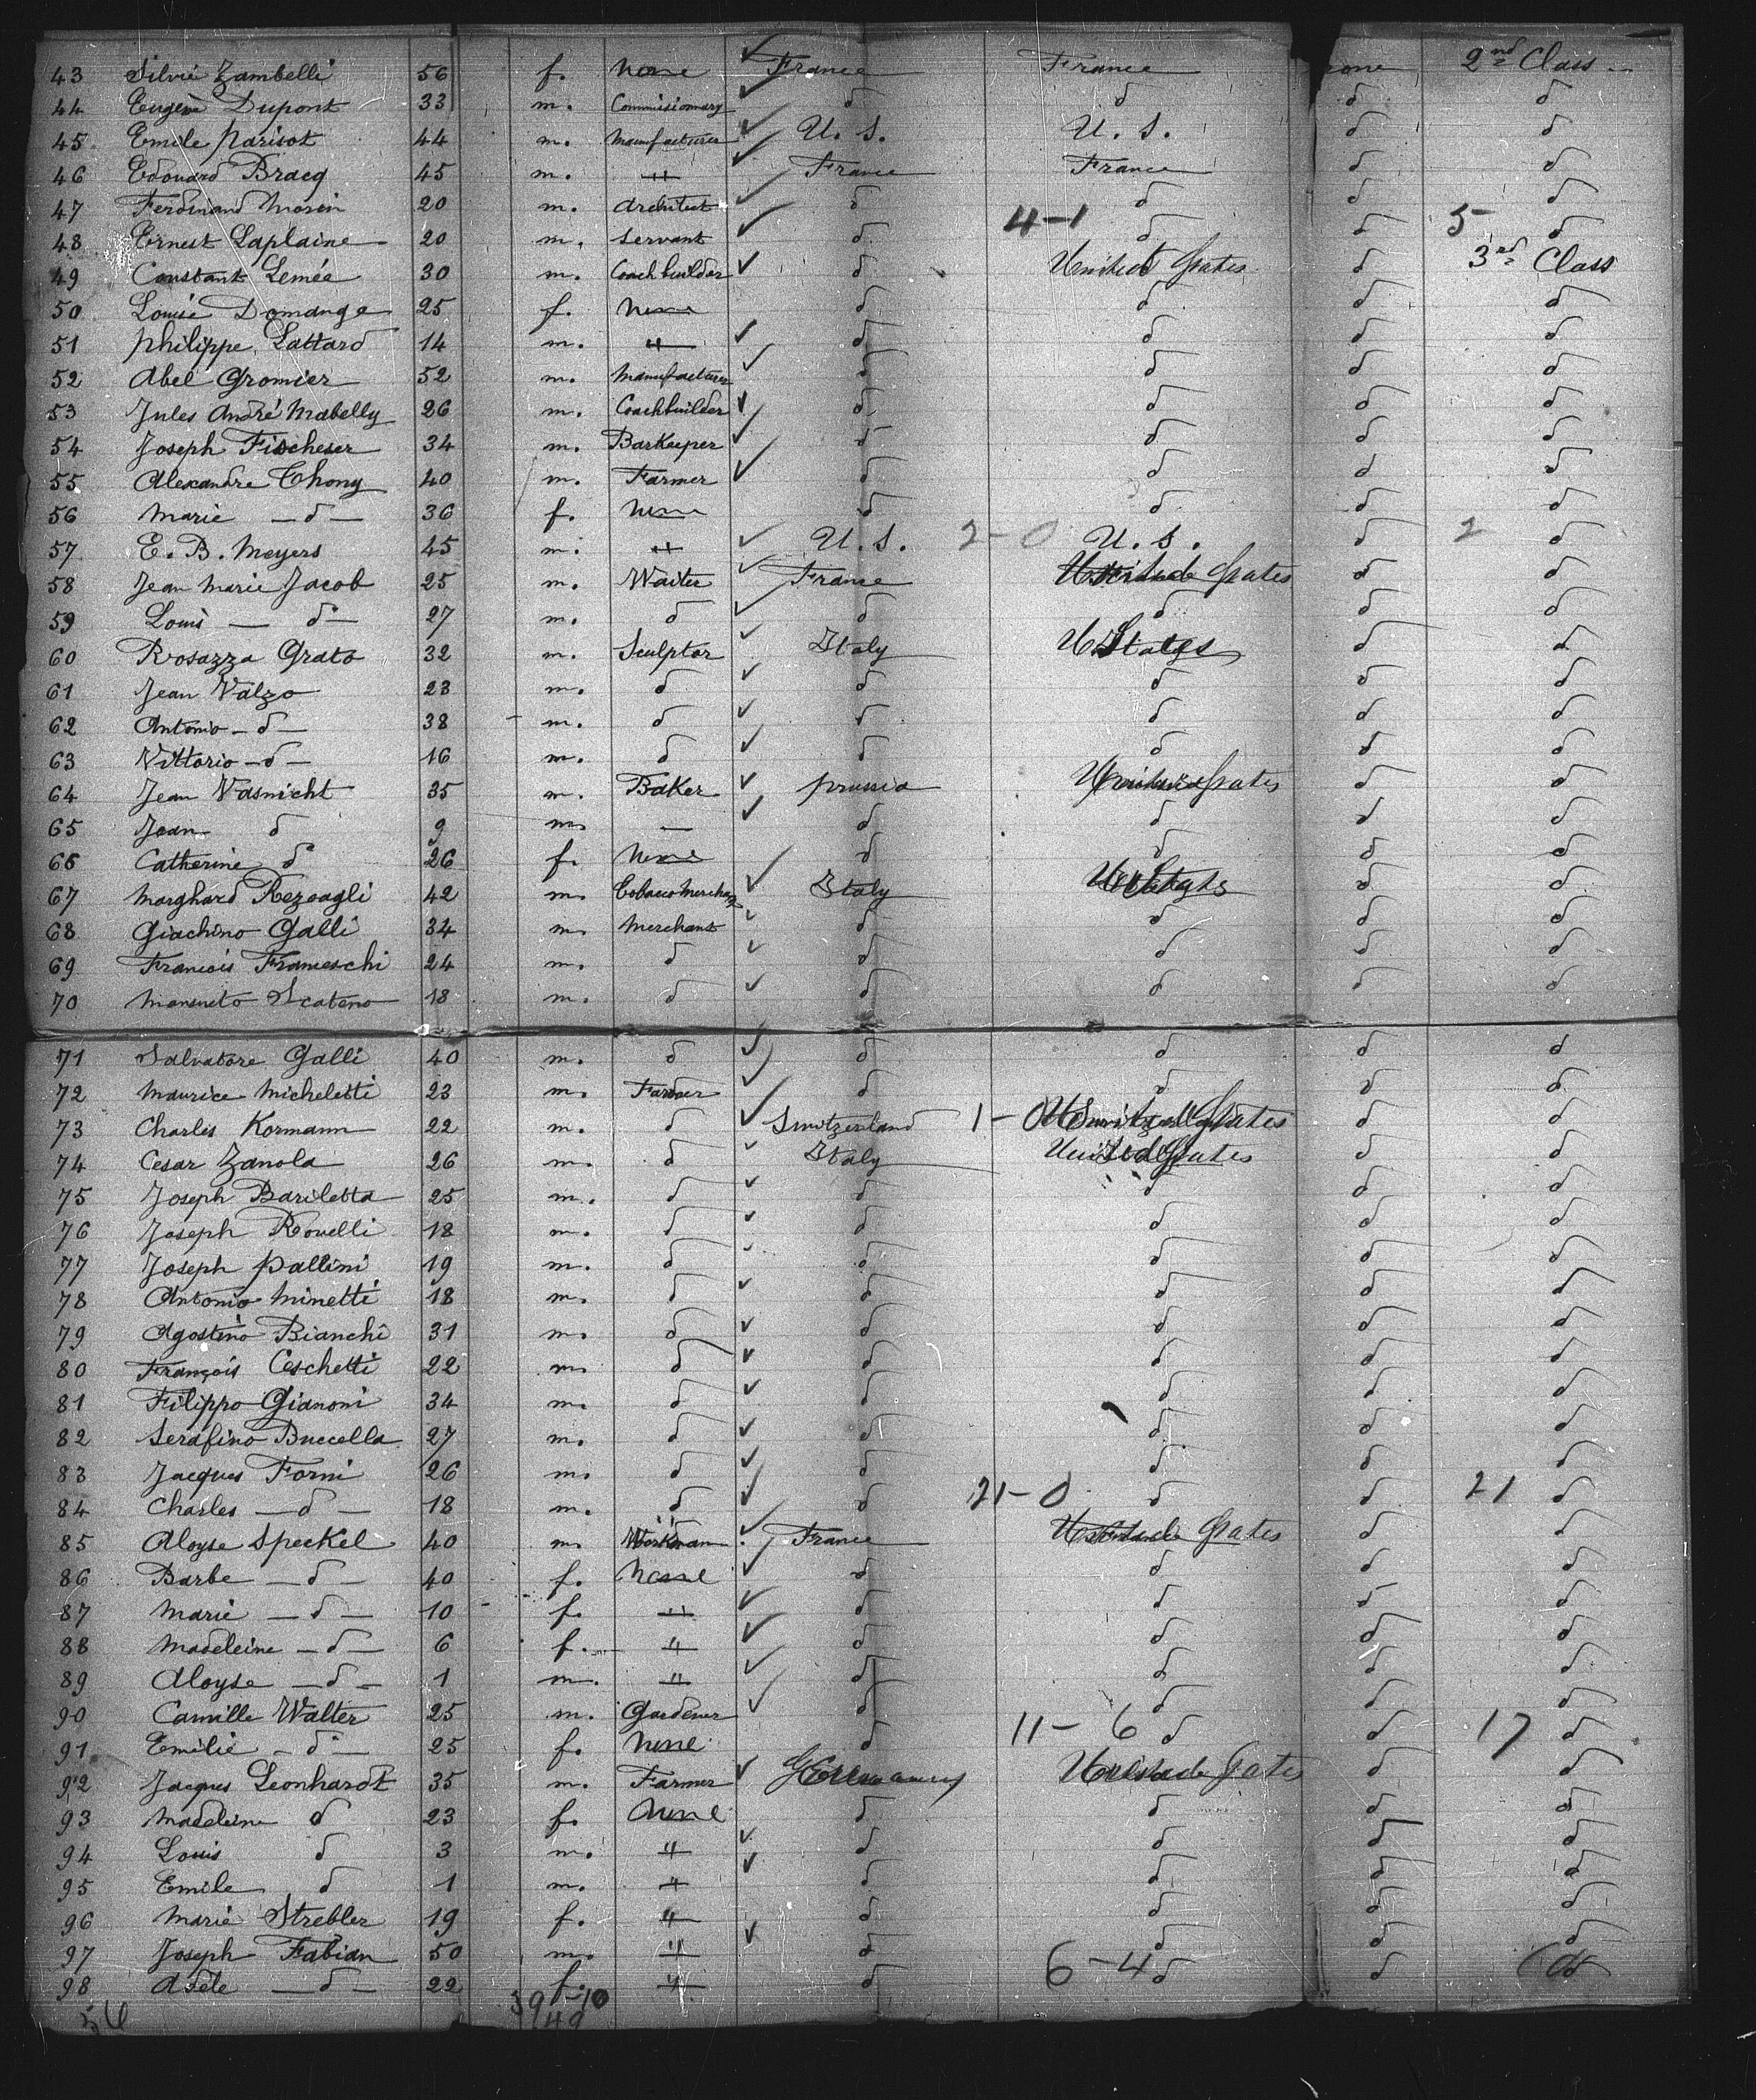 43 Silvié Zambelli 56 f. None France France none 2nd Class
44 Eugène Dupont 33 m. Commissionary d d d d
45 Emile Parisot 44 m. Manufacturer U. S. U. S. d d
46 Edouard Bracq 45 m. " France France d d
47 Ferdinand Morin 20 m. Architect d d d d
48 Ernest Laplaine 20 m. Servant d 4-1 d d 5 d
49 Constant Lemée 30 m. Coachbuilder d United States d 3rd Class
50 Louise Domange 25 f. None d d d d
51 Philippe Lattard 14 m. " d d d d
52 Abel Gromier 52 m. Manufacturer d d d d
53 Jules André Mabelly 26 m. Coachbuilder d d d d
54 Joseph Fischeser 34 m. Barkeeper d d d d
55 Alexandre Thony 40 m. Farmer d d d d
56 Marie — d — 36 f. None d d d d
57 E. B. Meyers 45 m. " U. S. 2-0 U. S. d 2 d
58 Jean Marie Jacob 25 m. Waiter France United States d d
59 Louis — d — 27 m. d d d d d
60 Rosazza Grato 32 m. Sculptor Italy U. States d d
61 Jean Valzo 23 m. d d d d d
62 Antonio — d — 38 m. d d d d d
63 Vittorio — d — 16 m. d d d d d
64 Jean Vasnicht 35 m. Baker Prussia United States d d
65 Jean d 9 m. — d d d d
66 Catherine d 26 f. None d d d d
67 Marghard Rezoagli 42 m. Tobacco Merchant Italy U States d d
68 Giachino Galli 34 m. Merchant d d d d
69 Francois Frameschi 24 m. d d d d d
70 Mansueto Scateno 18 m. d d d d d
71 Salvatore Galli 40 m. d d d d d
72 Maurice Micheletti 23 m. Farmer d d d d
73 Charles Kormann 22 m. d Switzerland 1-0 United States d d
74 Cesar Zanola 26 m. d Italy United States d d
75 Joseph Bariletta 25 m. d d d d d
76 Joseph Rovelli 18 m. d d d d d
77 Joseph Pallini 19 m. d d d d d
78 Antonio Minetti 18 m. d d d d d
79 Agostino Bianchi 31 m. d d d d d
80 François Ceschetti 22 m. d d d d d
81 Filippo Gianoni 34 m. d d d d d
82 Serafino Buccella 27 m. d d d d d
83 Jacques Forni 26 m. d d d d d
84 Charles — d — 18 m. d d 21-0 d d 21 d
85 Aloyse Speckel 40 m. Workman France United States d d
86 Barbe — d — 40 f. None d d d d
87 Marie — d — 10 f. " d d d d
88 Madeleine — d — 6 f. " d d d d
89 Aloyse — d — 1 m. " d d d d
90 Camille Walter 25 m. Gardener d d d d
91 Emélie — d — 25 f. None d 11-6 d d 17 d
92 Jacques Leonhardt 35 m. Farmer Germany United States d d
93 Madeleine d 23 f. None d d d d
94 Louis d 3 m. " d d d d
95 Emile d 1 m. " d d d d
96 Marie Strebler 19 f. " d d d d
97 Joseph Fabian 50 m. " d d d d
98 Adèle — d — 22 f. " d 6-4 d d d
39-10
49